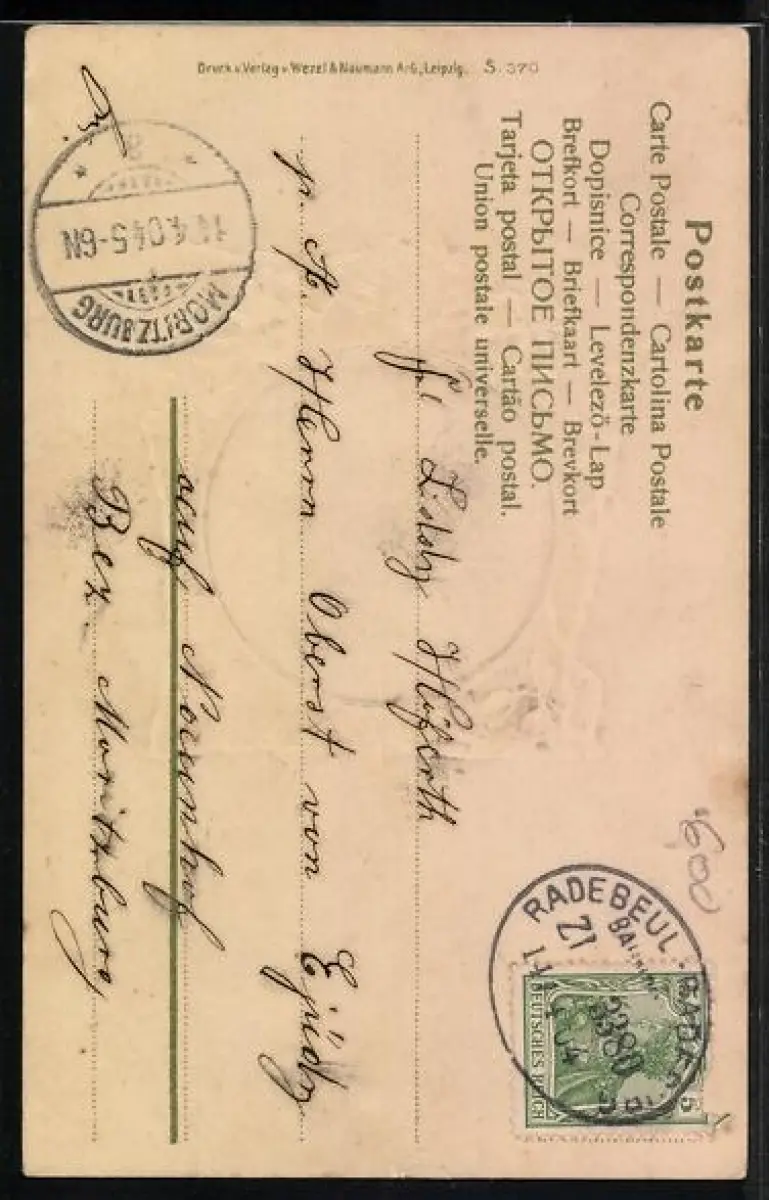 Druck u. Verlag v. Wezel & Naumann A-G., Leipzig. S. 370
Postkarte
Carte Postale — Cartolina Postale
Correspondenzkarte
Dopisnice — Levelező-Lap
Brefkort — Briefkaart — Brevkort
ОТКРЫТОЕ ПИСЬМО.
Tarjeta postal — Cartão postal.
Union postale universelle.
RADEBEUL
ZI
3380
DEUTSCHES REICH
5
MORITZBURG
4.04.5-6N
Frl. Liddy
p. A. Herrn Oberst von
auf Neuenhof
Bez. Moritzburg
600